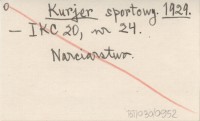 Kurjer sportowy. 1929.
— IKC 20, nr 24.
Narciarstwo.